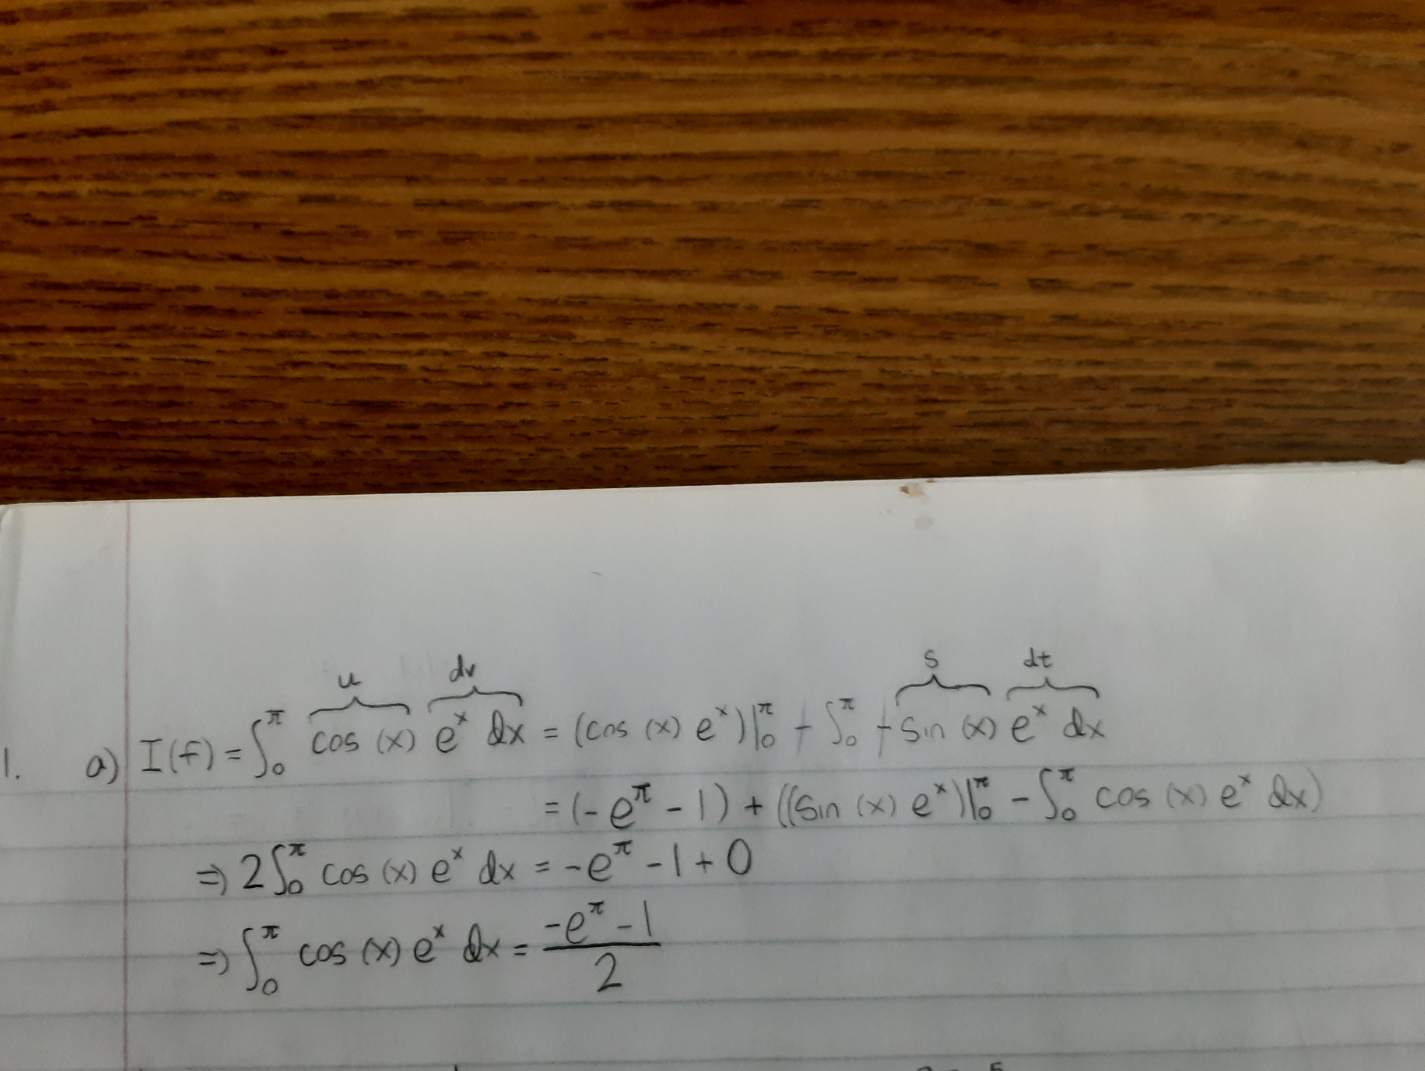 u dv s dt
1. a) I(f) = ∫₀^π cos (x) e^x dx = (cos (x) e^x)|₀^π + ∫₀^π + sin (x) e^x dx
= (-e^π - 1) + ((sin (x) e^x)|₀^π - ∫₀^π cos (x) e^x dx)
⇒ 2∫₀^π cos (x) e^x dx = -e^π - 1 + 0
⇒ ∫₀^π cos (x) e^x dx = (-e^π - 1)/2